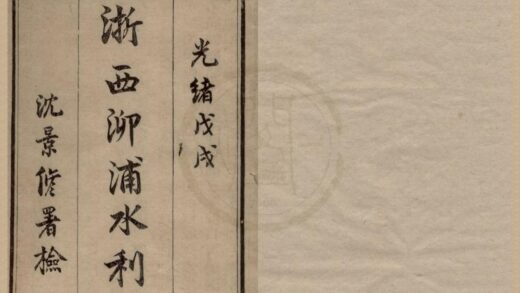 光緒戊戌
浙西泖浦水利
沈景修署檢